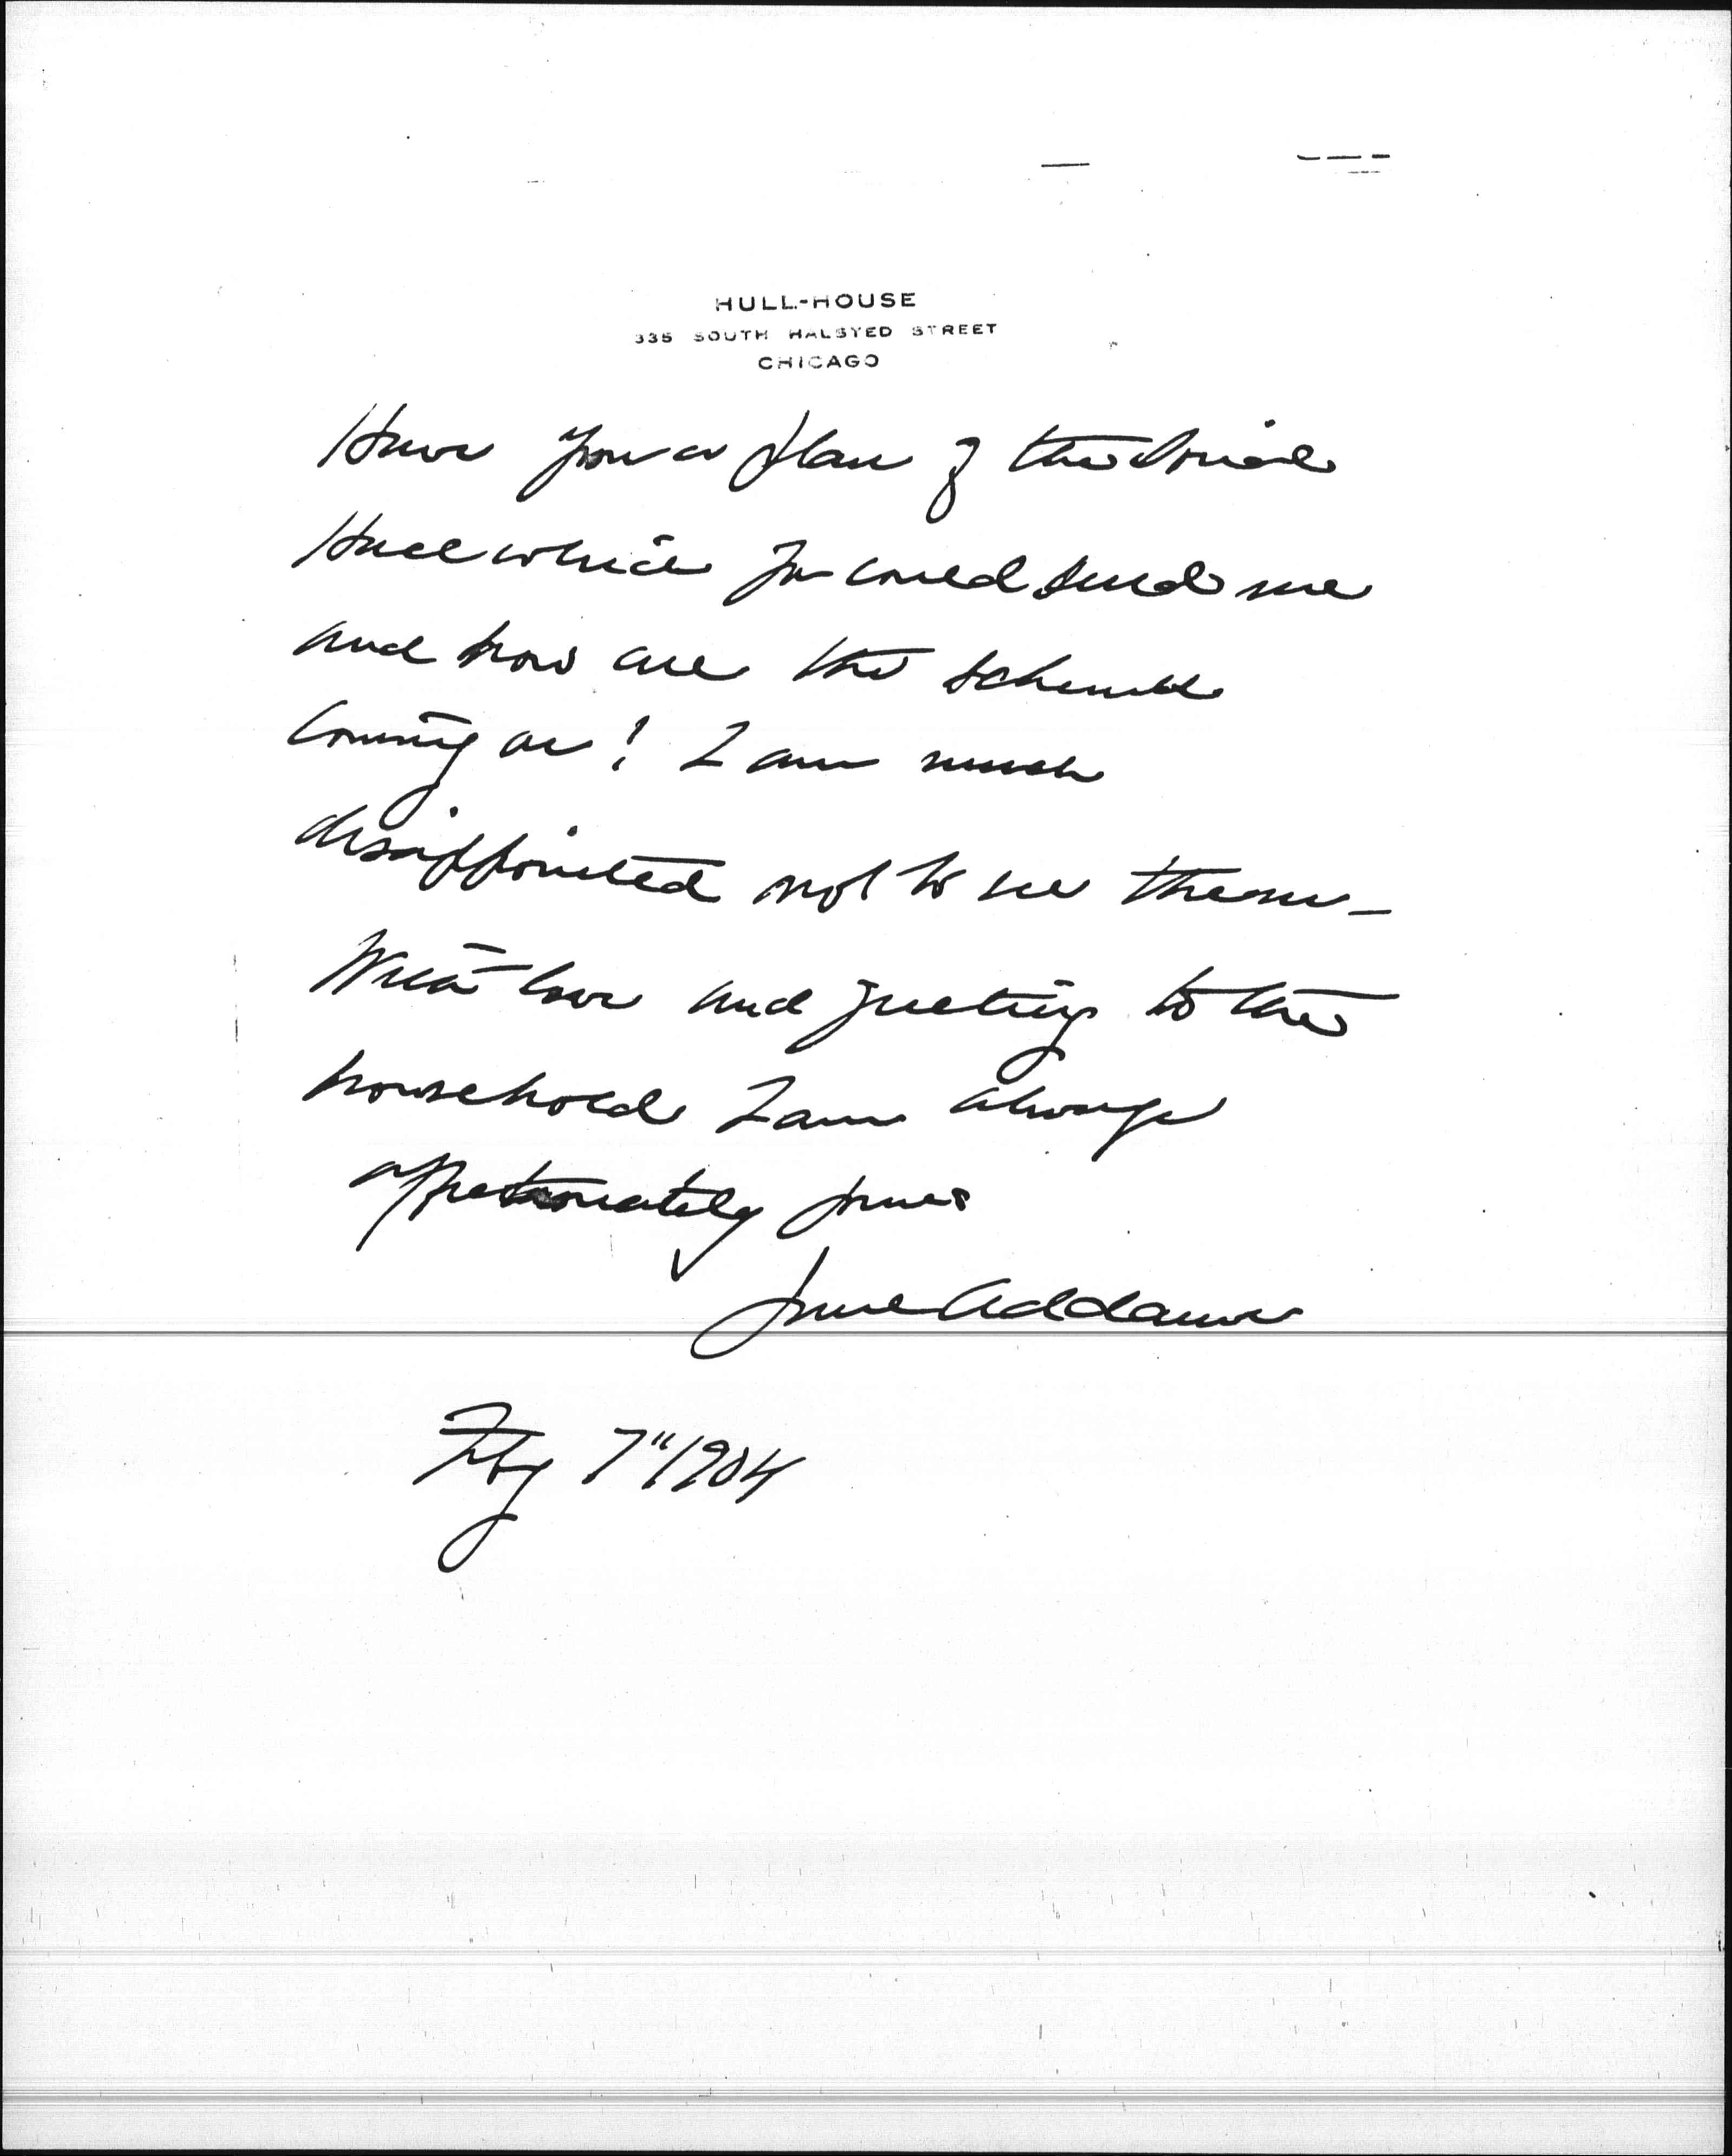 HULL-HOUSE
335 SOUTH HALSTED STREET
CHICAGO
Have you a plan of the Social
Hall which you could send me
and how are the schemes
coming on! I am much
disappointed not to see them –
With love and greetings to the
household I am always
affectionately yours
Jane Addams
Feby 7" 1904